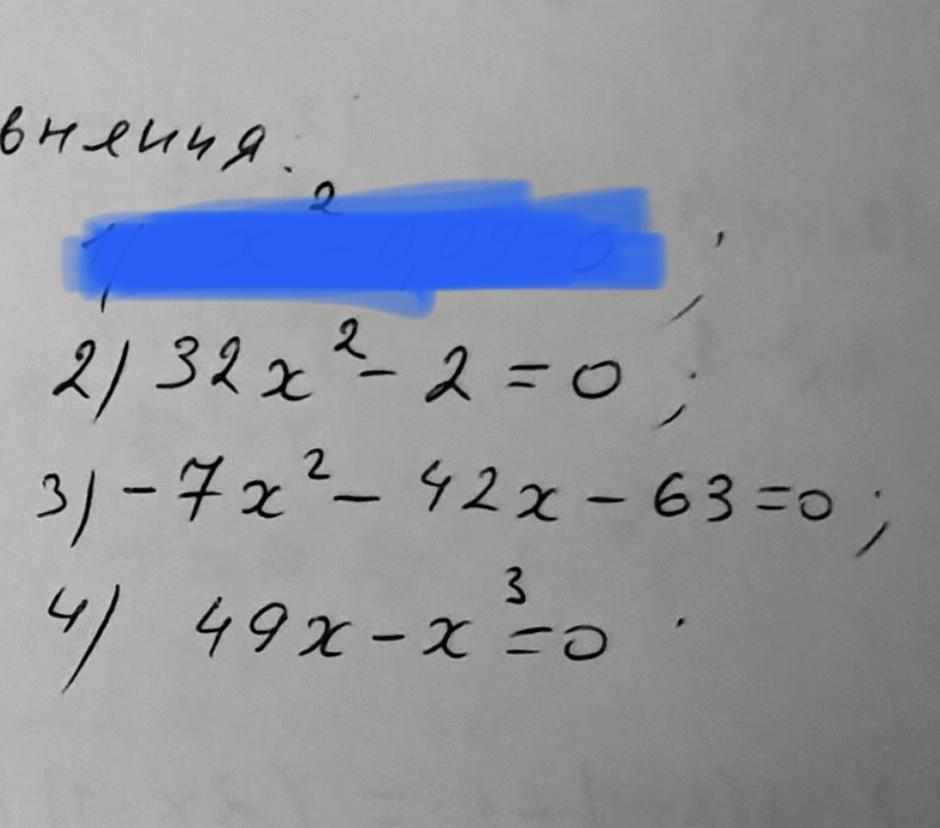 внения.
2) 32x² - 2 = 0;
3) -7x² - 42x - 63 = 0;
4) 49x - x³ = 0.